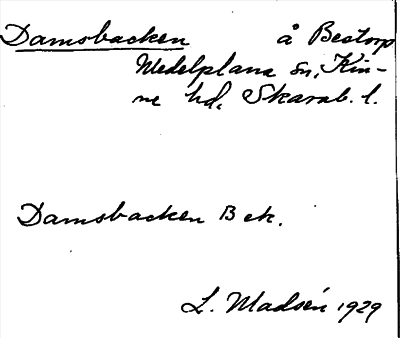 Damsbacken å Bestorp
Medelplana sn, Kin-
ne hd, Skarab. l.
Damsbacken Bek.
L. Madsén 1929